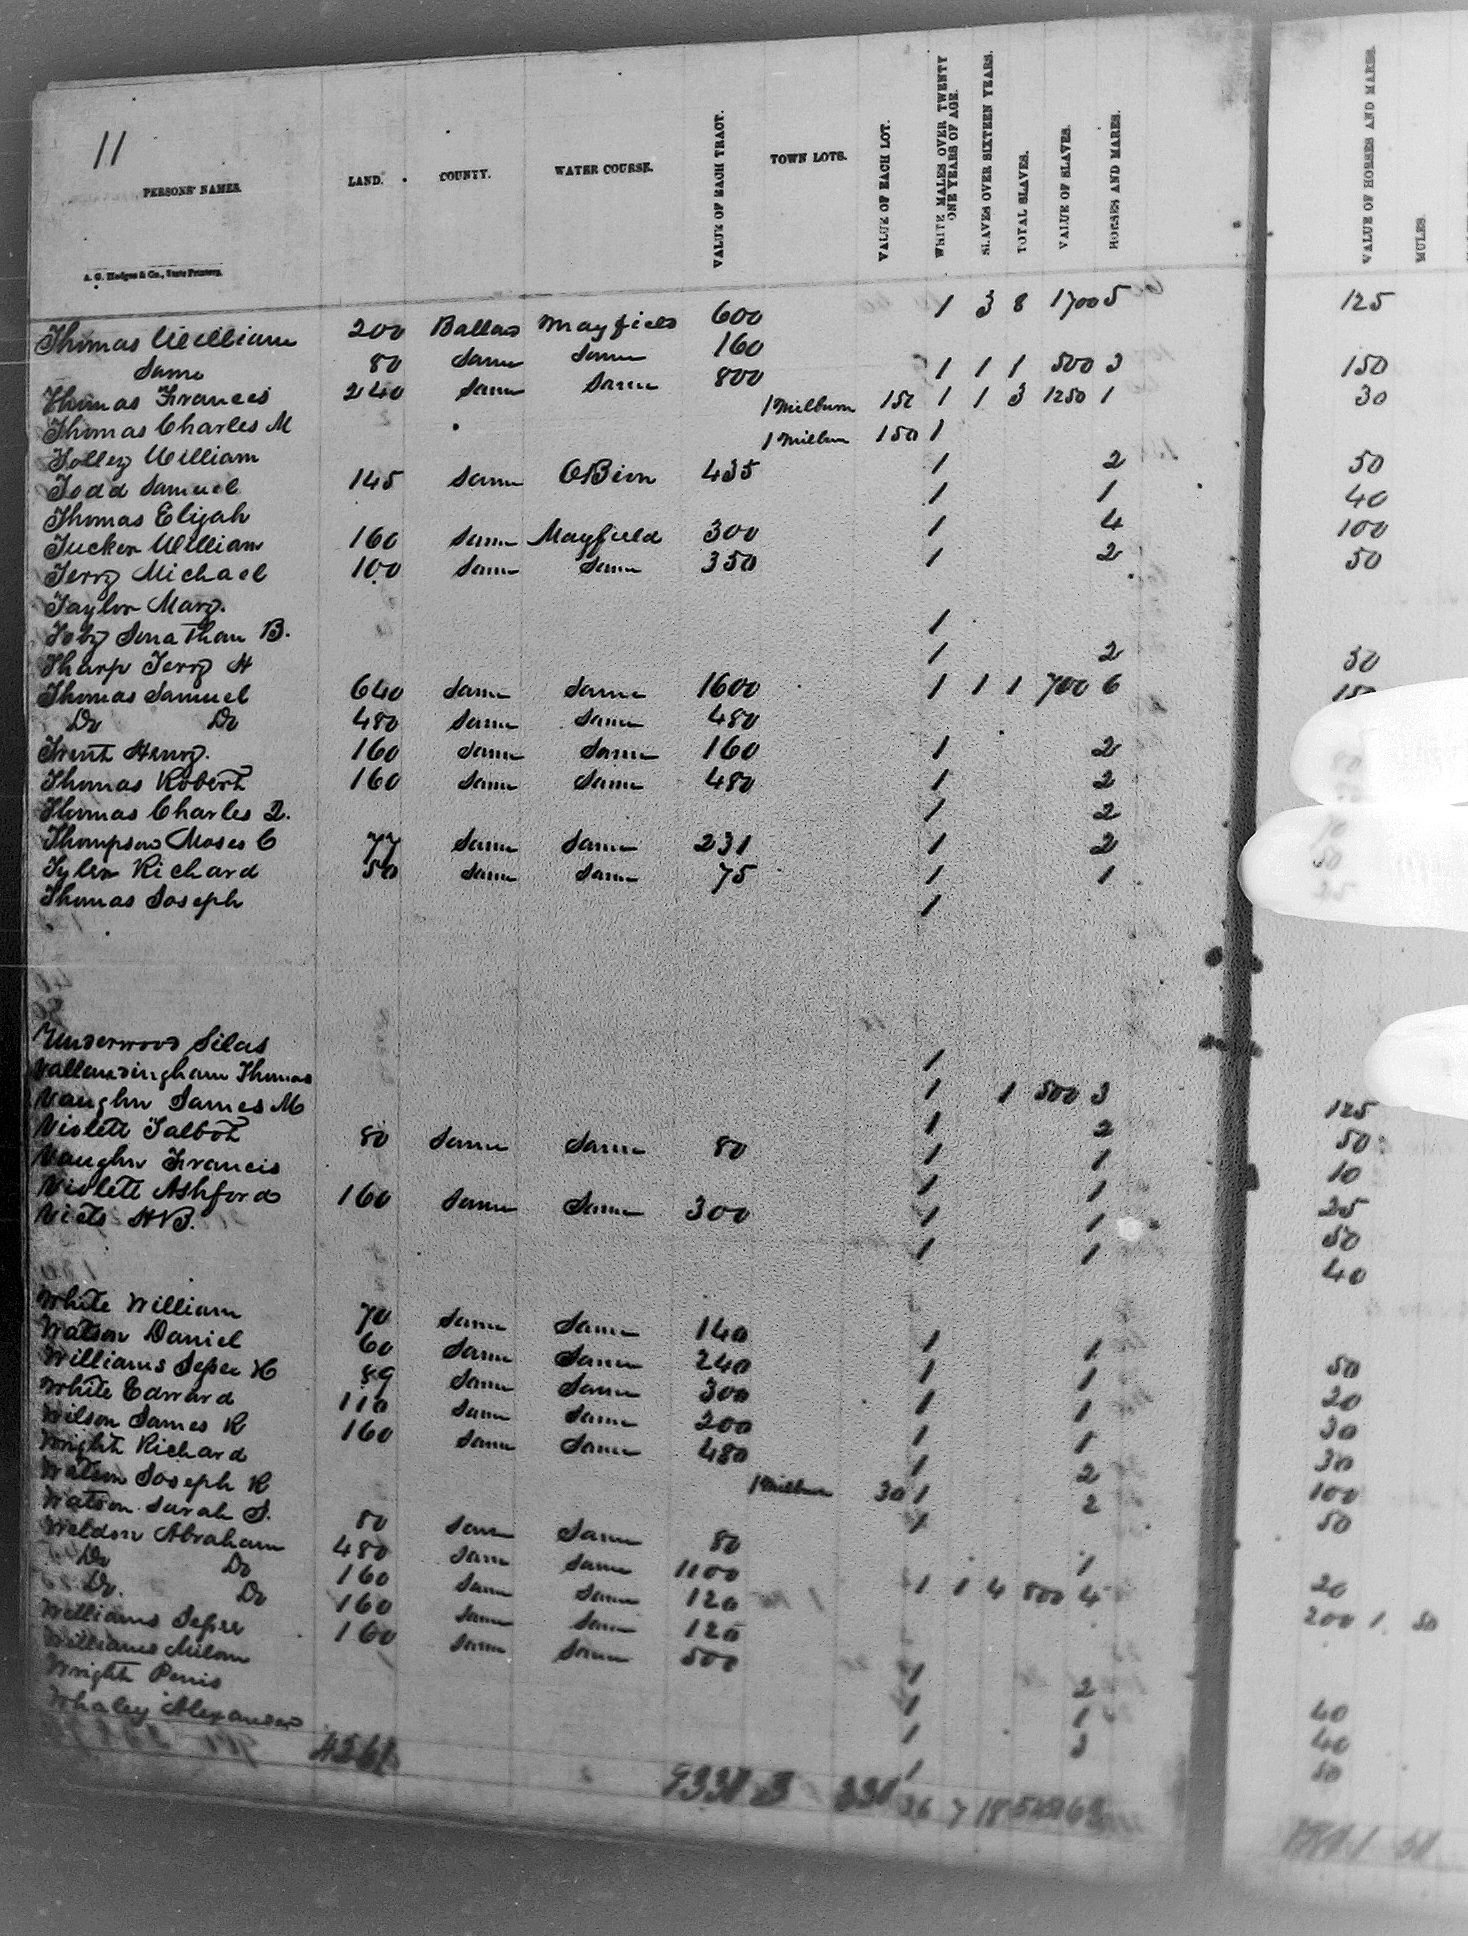 11
PERSONS' NAMES. LAND. COUNTY. WATER COURSE. VALUE OF EACH TRACT. TOWN LOTS. VALUE OF EACH LOT. WHITE MALES OVER TWENTY ONE YEARS OF AGE. SLAVES OVER SIXTEEN YEARS. TOTAL SLAVES. VALUE OF SLAVES. HORSES AND MARES. VALUE OF HORSES AND MARES. MULES.
A. G. Hodges & Co., State Printers.
Thomas William 200 Ballad Mayfield 600 1 3 8 1700 5 125
Same 80 Same Same 160
Thomas Frances 240 Same Same 800 1 1 1 500 3 150
Thomas Charles M 1 Milburn 150 1 1 3 1250 1 30
Tolley William 1 Milbn 150 1
Todd Samuel 145 Same OBion 435 1 2 50
Thomas Elijah 1 1 40
Tucker William 160 Same Mayfield 300 1 4 100
Terry Michael 100 Same Same 350 1 2 50
Taylor Mary.
Toby Jonathan B. 1
Tharp Terry H 1 2 30
Thomas Samuel 640 Same Same 1600 1 1 1 700 6 150
Do Do 480 Same Same 480
Trent Henry. 160 Same Same 160 1 2
Thomas Robert 160 Same Same 480 1 2
Thomas Charles Q. 1 2
Thompson Moses C 77 Same Same 231 1 2
Tyler Richard 50 Same Same 75 1 1
Thomas Joseph 1
Underwood Silas 1
Vallandingham Thomas 1 1 500 3 125
Vaughn James M 1 2 50
Violett Talbot 80 Same Same 80 1 1 10
Vaughn Francis 1 1 25
Violett Ashford 160 Same Same 300 1 1 50
Viets HB. 1 1 40
White William 70 Same Same 140 1 1 50
Watson Daniel 60 Same Same 240 1 1 20
Williams Jesse H 89 Same Same 300 1 1 30
White Edward 110 Same Same 200 1 1 30
Wilson James R 160 Same Same 480 1 2 100
Wright Richard 1 Milbn 30 1 2 50
Watson Joseph R 1
Watson Sarah J. 80 Same Same 80 1 20
Weldon Abraham 480 Same Same 1100 1 1 4 800 4 200 1 50
Do Do 160 Same Same 120
Do. Do 160 Same Same 120
Williams Jesse 160 Same Same 500 1 2 40
Williams Milom 1 1 40
Wright Penis 1 3 50
Whaley Alexander 1
4561 9331 3 331 36 7 18